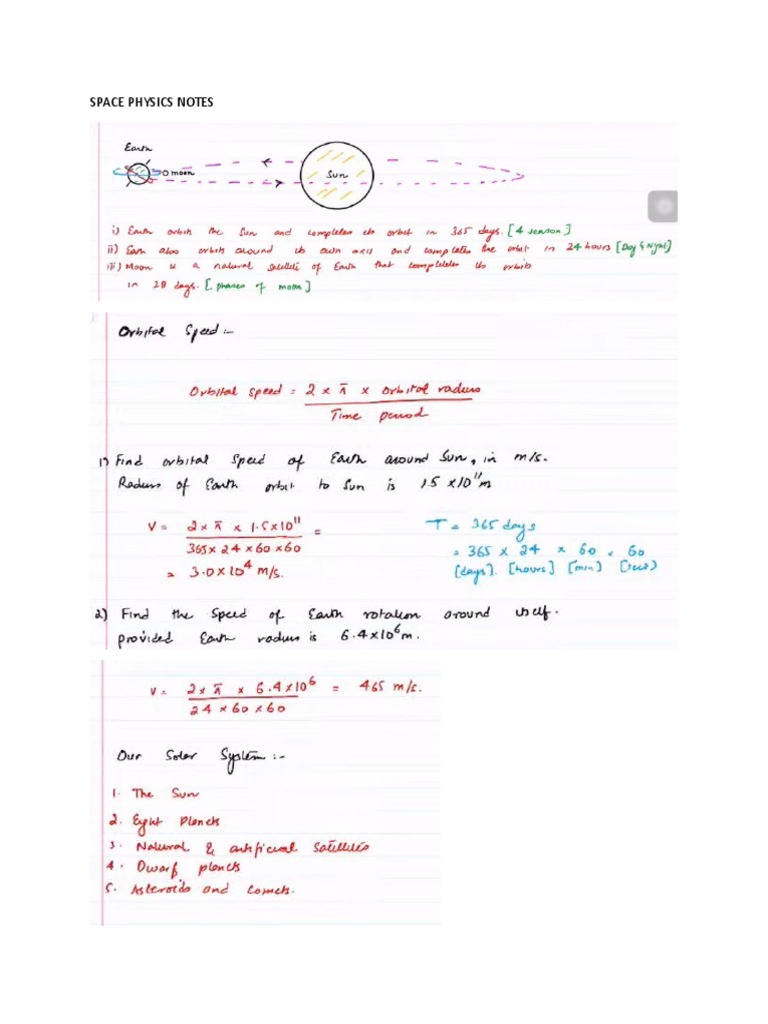 SPACE PHYSICS NOTES
Earth
moon
Sun
i) Earth orbits the Sun and completes its orbit in 365 days. [4 season]
ii) Earth also orbits around its own axis and completes the orbit in 24 hours [Day & Night]
iii) Moon is a natural satellite of Earth that completes its orbits
in 28 days. [phases of moon]
Orbital Speed:-
Orbital speed = 2 x π x orbital radius
Time period
1) Find orbital speed of Earth around Sun, in m/s.
Radius of Earth orbit to Sun is 1.5 x10¹¹m
V = 2 x π x 1.5x10¹¹ =
365x 24 x 60 x60
= 3.0x10⁴ m/s.
T = 365 days
= 365 x 24 x 60 x 60
[days]. [hours] [min) (secs)
2) Find the speed of Earth rotation around itself.
provided Earth radius is 6.4x10⁶m.
V = 2x π x 6.4x10⁶ = 465 m/s.
24 x 60 x 60
Our Solar System:-
1. The Sun
2. Eight Planets
3. Natural & artificial Satellites
4. Dwarf planets
5. Asteroids and Comets.